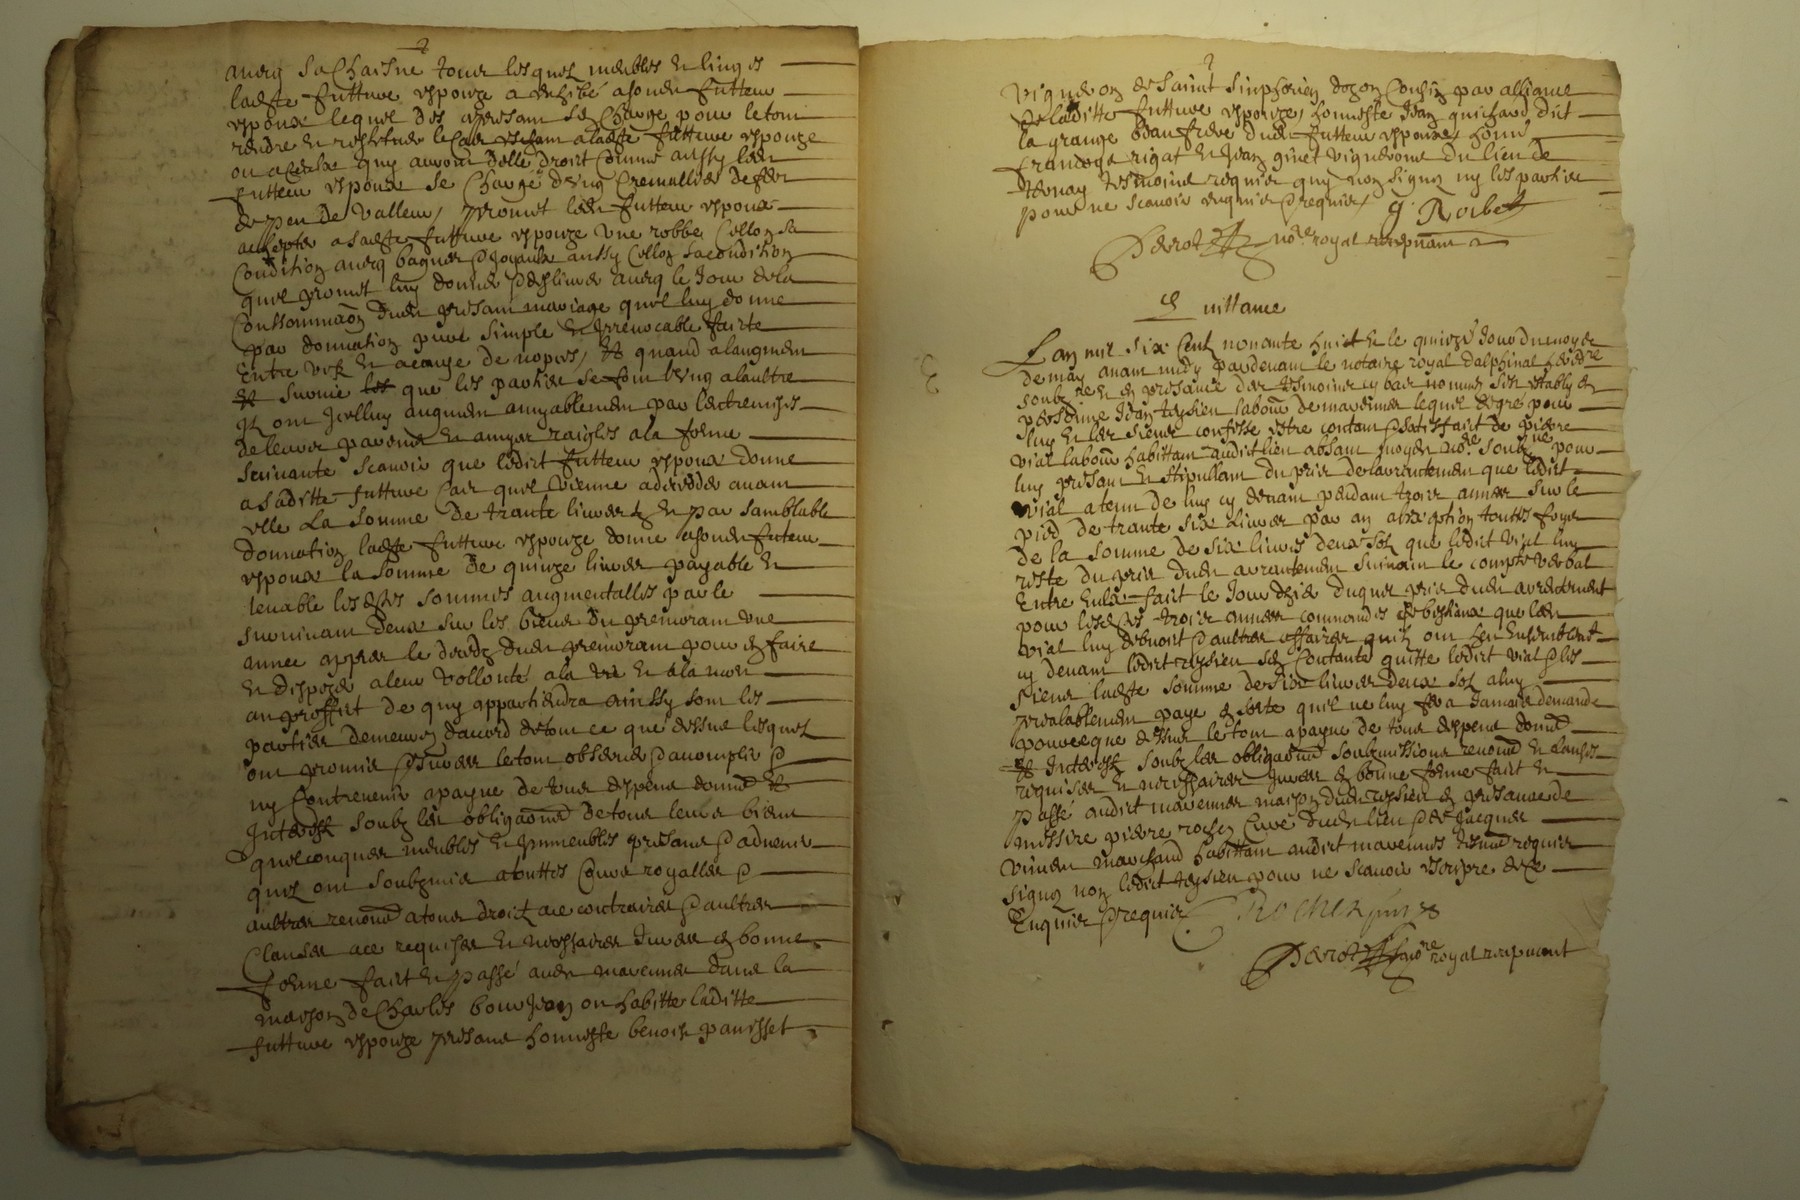 avecq sa Chaisne tous lesquels meubles et linges
ladte future espouze a exhibé a sondt futteur
espoux lequel dès a present se charge pour le tout
rendre et restituer le cas escheant a ladte future espouze
ou a ceulx quy auront d'elle droit Comme aussy ledt
futteur espoux se Charge d'ung Cremallier de fer
de peu de valleur, promet ledt futteur espoux
achepter a sadte future espouze une robbe sellon sa
Condition avecq bagues & joyaulx aussy sellon sa condition
quil promet luy donner & deslivrer avecq le jour de la
Consommaon dudt presant mariage quil luy donne
par donnation pure simple et irrevocable faicte
Entre vifz et a cauze de nopces, et quand a laugment
et survie que les parties se font l'ung a laultre
ilz ont icelluy augment amyablement par lentremise
de leurs parents et amys raiglés a la forme
suivante scavoir que ledict futteur espoux donne
a saditte future cas quil vienne a decedder avant
elle la somme de trante livres et par samblable
donnation ladte future espouze donne a sondt futeur
espoux la somme de quinze livres payable et
levable lesdtes sommes augmentalles par le
survivant deux sur les biens du premourant une
annee appres le decedz dudt premourant pour en faire
et dispozer a leur vollonté a la vie et a la mort
au proffict de quy appartiendra ainssy sont les
parties demeurez daccord de tout ce que dessus lesquels
ont promis & jurer le tout observer & accomplir &
ny contrevenir a payne de tous despens domd et
Interestz soubz les obligaons de tous leurs biens
quelconques meubles et immeubles presans & advenir
quilz ont soubzmis a touttes Cours royalles &
aultres renond a tous droictz a ce contraires & aultres
Clauses a ce requises et necessaires jurer en bonne
forme faict et passé audt marennes dans la
maison de Charles bourjean ou habitte laditte
future espouze presans honneste benoist panisset
vigneron de Saint Simphorien dozon Cousin par alliance
de laditte future espouze, honneste Jean guichard dict
la grange beaufrere dudt futteur espoux, honn
francois rigat et Jean ginet vignerons du lieu de
ternay tesmoins requis quy non signez ny les parties
pour ne scavoir enquis & requis, J Roibet
Perrot nore royal recepvant
Quittance
Lan mil six Cent nonante huict et le quinze jour du moys
de may avant midy pardevant le notaire royal dalphinal hereditre
soubzne et en presance des tesmoins cy bas nommés sest estably en
persone Jean teysien labour de marennes lequel de gré pour
luy et les siens confesse estre contant & satisfaict de pierre
vial labour habittant audict lieu absant moyen nore soubzne pour
luy presant et stipullant du prix de larrentement que ledict
vial a tenu de luy cy devant pendant trois annes sur le
pied de trante six livres par an a exception touttes foys
de la somme de six livres deux solz que ledict vial luy
reste du prix dudt arrantement suivant le compte verbal
Entre Eulx fait le jour dhier duquel prix dudt arrentement
pour lesdtes trois annes commandes de bestiaux que ledt
vial luy debvoit & aultres affaires quilz ont heu ensemblemt
cy devant ledict teysien se contante quitte ledict vial & les
siens ladte somme de six livres deux solz a luy
prealablement paye en sorte quil ne luy fera jamais demande
pource que dessus le tout a payne de tous despens domd
et Interestz soubz les obligaons soubzmissions renond et clauses
requises et necessaires jurer en bonne forme faict et
passé audict marennes maison dudt teysien en presance de
missire pierre rochez Curé dudt lieu & de Jacques
marchand habittant audict marennes tesmd requis
signez non ledict teysien pour ne scavoir escripre de ce
Enquis & requis, Rochez
Perrot nore royal recepvant